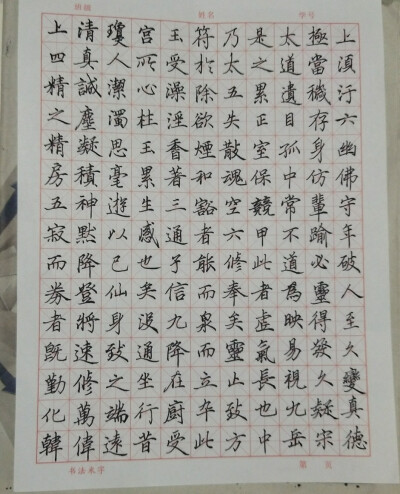 上清瓊宮玉符乃是太極上
四真人所受於太之道當湏
精誠潔心澡除五累遺穢汙
之塵濁柱淫欲失正目存六
精凝思王香煙散室孤身幽
房積毫累著和魂保中仿佛
五神遊生三豁空競常輩守
寂默以感通者六甲不踰年
而降已也予能修此道必破
券登仙矣信而奉者為靈人
者將身沒九泉矣虛映得至
既速致通降而靈氣易發久
勤修之坐在立止長視久變
化萬端行廚卒致也九疑真
韓偉遠昔受此方中岳宗德
班級 姓名 学号
书法米字 第 页